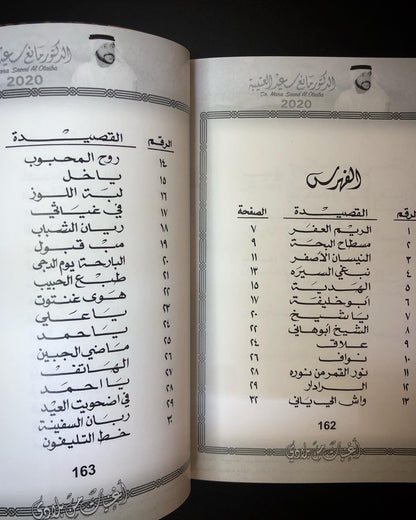 الدكتور مانع سعيد العتيبة
Dr. Mana Saeed Al Otaiba
2020
الفهرس
الرقم القصيدة الصفحة
١ الريم العفر ٧
٢ مسطاح البحة ٩
٣ النيسان الأصفر ١١
٤ نبغي السيره ١٣
٥ الهدية ١٥
٦ أبو خليفة ١٧
٧ يا شيخ ٢٠
٨ الشيخ أبوهاني ٢٢
٩ علاق ٢٤
١٠ نواف ٢٦
١١ نور القمر من نوره ٢٨
١٢ الرادار ٢٩
١٣ واش الحي ياني ٣٢
162
أغنيات من بلادي
الدكتور مانع سعيد
Dr. Mana Saeed Al Otaiba
2020
الرقم القصيدة
١٤ روح المحبوب
١٥ ياخل
١٦ لبة اللوز
١٧ في غيابي
١٨ ريان الشباب
١٩ قبول
٢٠ البارحة يوم الدجى
٢١ طبع الحبيب
٢٢ هوى غنتوت
٢٣ يا علي
٢٤ يا حمد
٢٥ ماضي الجبين
٢٦ الهاتف
٢٧ يا احمد
٢٨ في اضحويت العيد
٢٩ ربان السفينة
٣٠ خط التليفون
163
أغنيات من بلادي